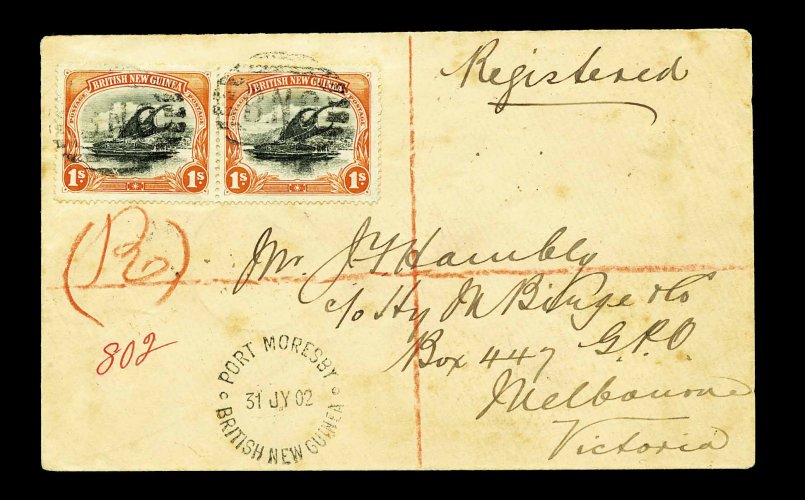 BRITISH NEW GUINEA
POSTAGE POSTAGE
1s. 1s.
BRITISH NEW GUINEA
POSTAGE POSTAGE
1s. 1s.
Registered
(R)
802
Mr. J Hambly
c/o Hy M Binge & Co
Box 447 G.P.O
Melbourne
Victoria
PORT MORESBY
31 JY 02
BRITISH NEW GUINEA